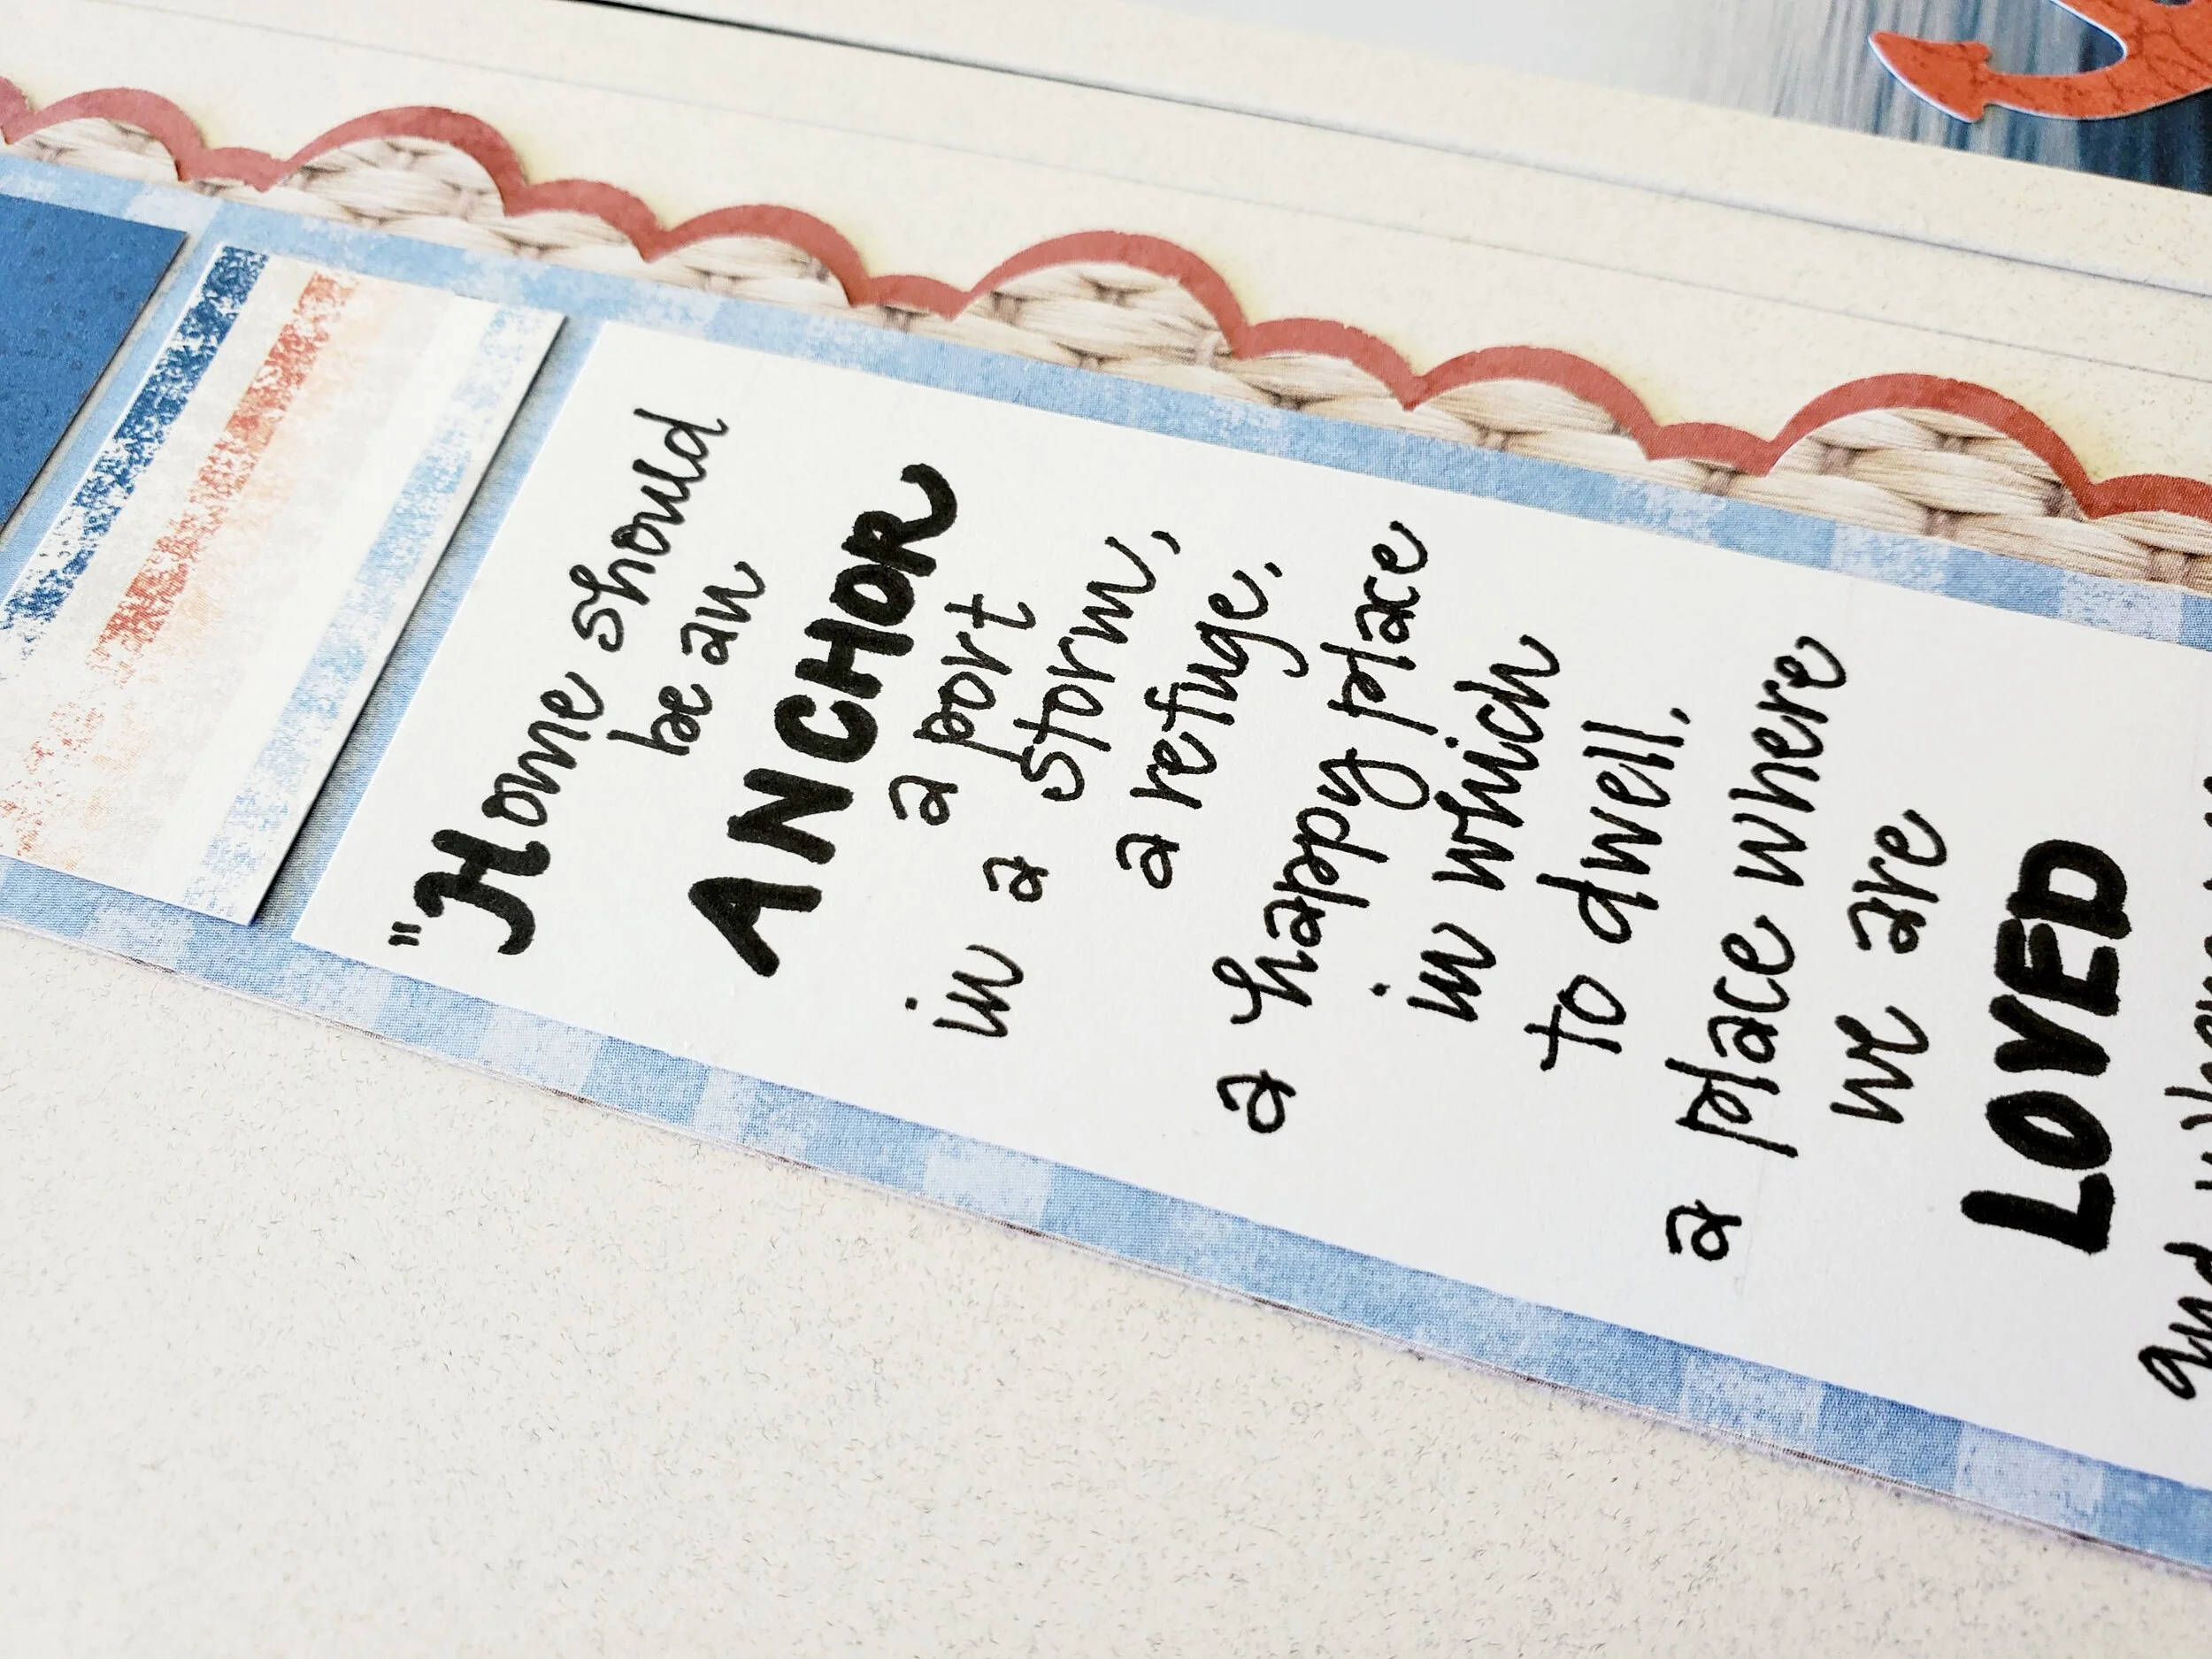 "Home should
be an
ANCHOR
a port
in a storm,
a refuge,
a happy place
in which
to dwell,
a place where
we are
LOVED
and where